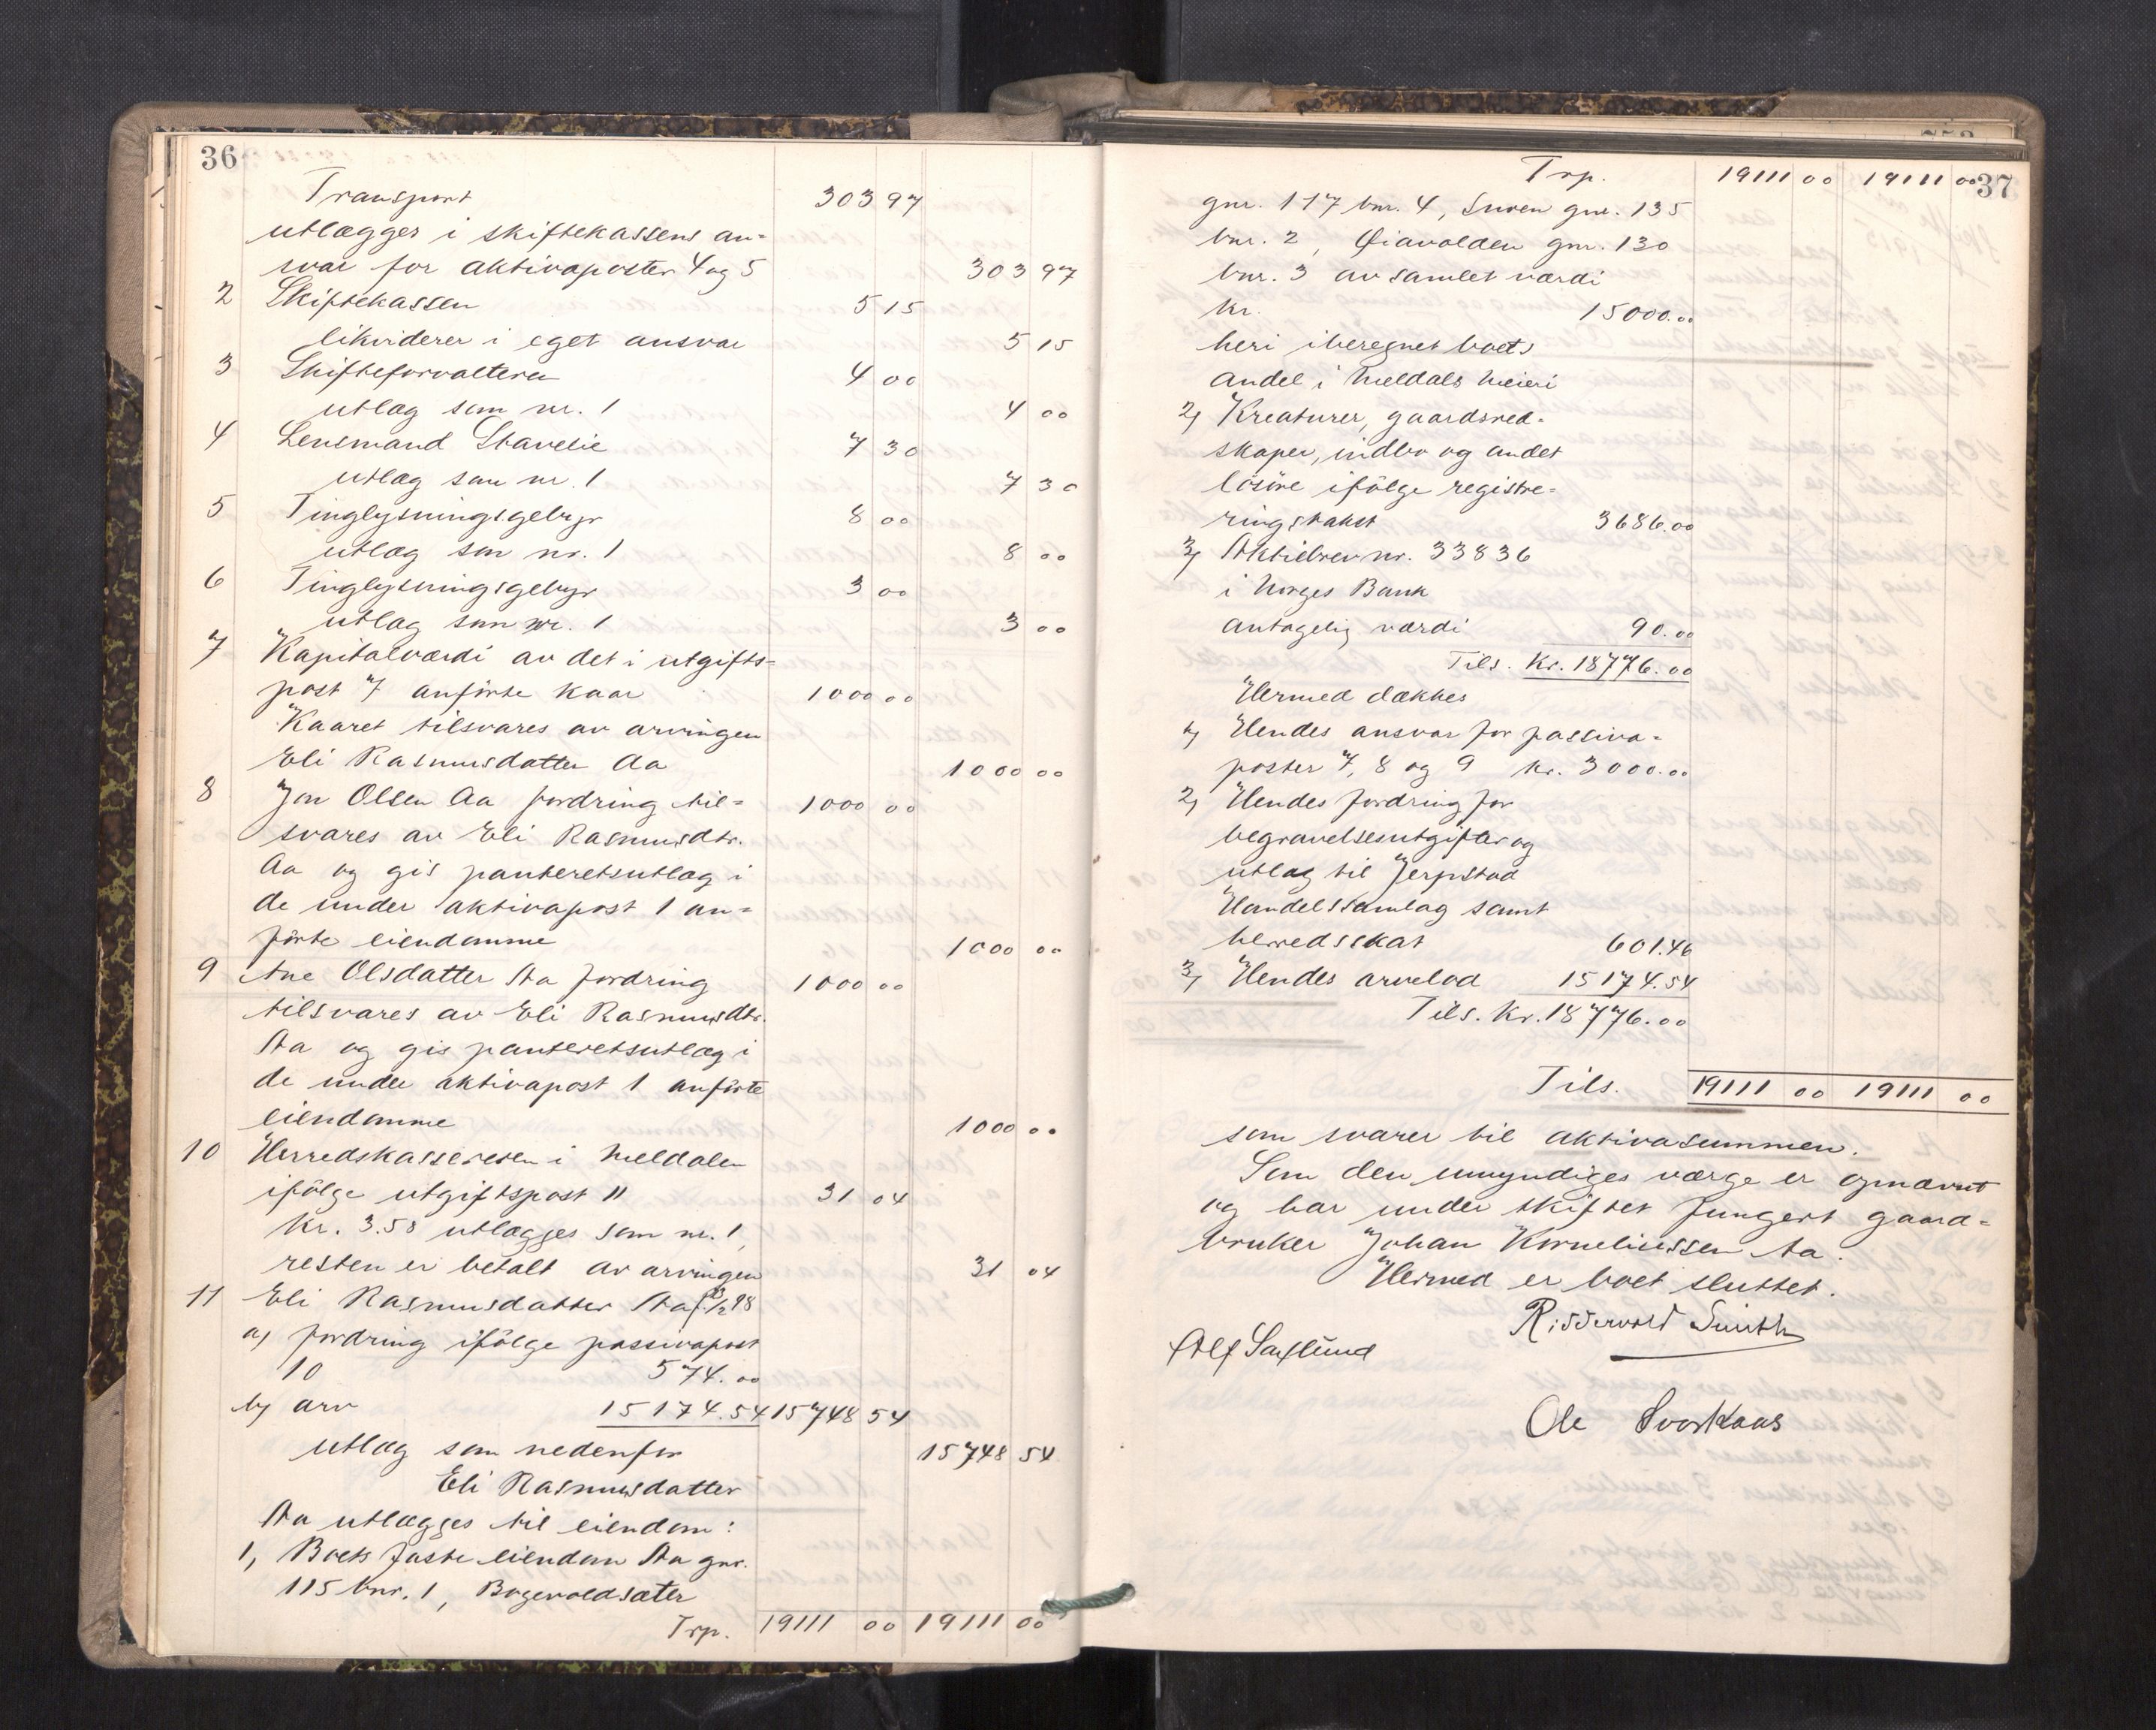 36
Transport 303 97
utlægges i skiftekassens an=
svar for aktivaposter 4 og 5 303 97
2 Skiftekassen 5 15
likviderer i eget ansvar 5 15
3 Skifteforvalteren 4 00
utlæg som nr. 1 4 00
4 Lensmand Stavelie 7 30
utlæg som nr. 1 7 30
5 Tinglysningsgebyr 8 00
utlæg som nr. 1 8 00
6 Tinglysningsgebyr 3 00
utlæg som nr. 1 3 00
7 Kapitalværdi av det i utgifts=
post 7 anförte kaar 1000 00
Kaaret tilsvares av arvingen
Eli Rasmusdatter Aa 1000 00
8 Jon Olsen Aa fordring til= 1000 00
svares av Eli Rasmusdtr.
Aa og gis panteretsutlæg i
de under aktivapost 1 an=
förte eiendomme 1000 00
9 Ane Olsdatter Aa fordring 1000 00
tilsvares av Eli Rasmusdtr.
Aa og gis panteretsutlæg i
de under aktivapost 1 anförte
eiendomme 1000 00
10 Herredskassereren i Meldalen
ifölge utgiftspost 11 31 04
kr. 3.58 utlægges som nr. 1,
resten er betalt av arvingen 31 04
11 Eli Rasmusdatter Aa f. /2 98
a, fordring ifölge passivapost
10 574.00
b, arv 15174.54 15748 54
utlæg som nedenfor 15748 54
Eli Rasmusdatter
Aa utlægges til eiendom:
1, Boets faste eiendom Aa gnr.
115 bnr. 1, Bogevoldsæter
Trp. 19111 00 19111 00
37
Trp. 19111 00 19111 00
gnr. 117 bnr. 4, gnr. 135
bnr. 2, Öiavolden gnr. 130
bnr. 3 av samlet værdi
kr. 15000.00
heri iberegnet boets
andel i Meldals Meieri
2, Kreaturer, gaardsred-
skaper, indbo og andet
lösöre ifölge registre=
ringstakst 3686.00
3, Aktiebrev nr. 33836
i Norges Bank
antagelig værdi 90.00
Tils. Kr. 18776.00
Hermed dækkes
1, Hendes ansvar for passiva-
poster 7, 8 og 9 kr. 3000.00
2, Hendes fordring for
begravelsesutgifter og
utlæg til Jerpstad
Handelssamlag samt
herredsskat 601.46
3, Hendes arvelod 15174.54
Tils. Kr. 18776.00
Tils. 19111 00 19111 00
som svarer til aktivasummen.
Som den umyndiges værge er opnævnt
og har under skiftet fungert gaard=
bruker Johan Korneliussen Aa.
Hermed er boet sluttet.
Riddervold Smith
Alf Saxlund
Ole Svorkaas